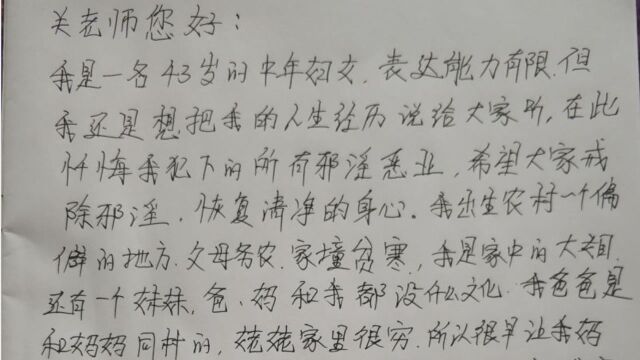 关老师您好：
我是一名43岁的中年妇女，表达能力有限，但
我还是想把我的人生经历说给大家听，在此
忏悔我犯下的所有邪淫恶业，希望大家戒
除邪淫，恢复清净的身心。我出生农村一个偏
僻的地方，父母务农，家撞贫寒，我是家中的大姐，
还有一个妹妹，爸、妈和我都没什么文化，我爸爸是
和妈妈同村的，姥姥家里很穷，所以很早让我妈